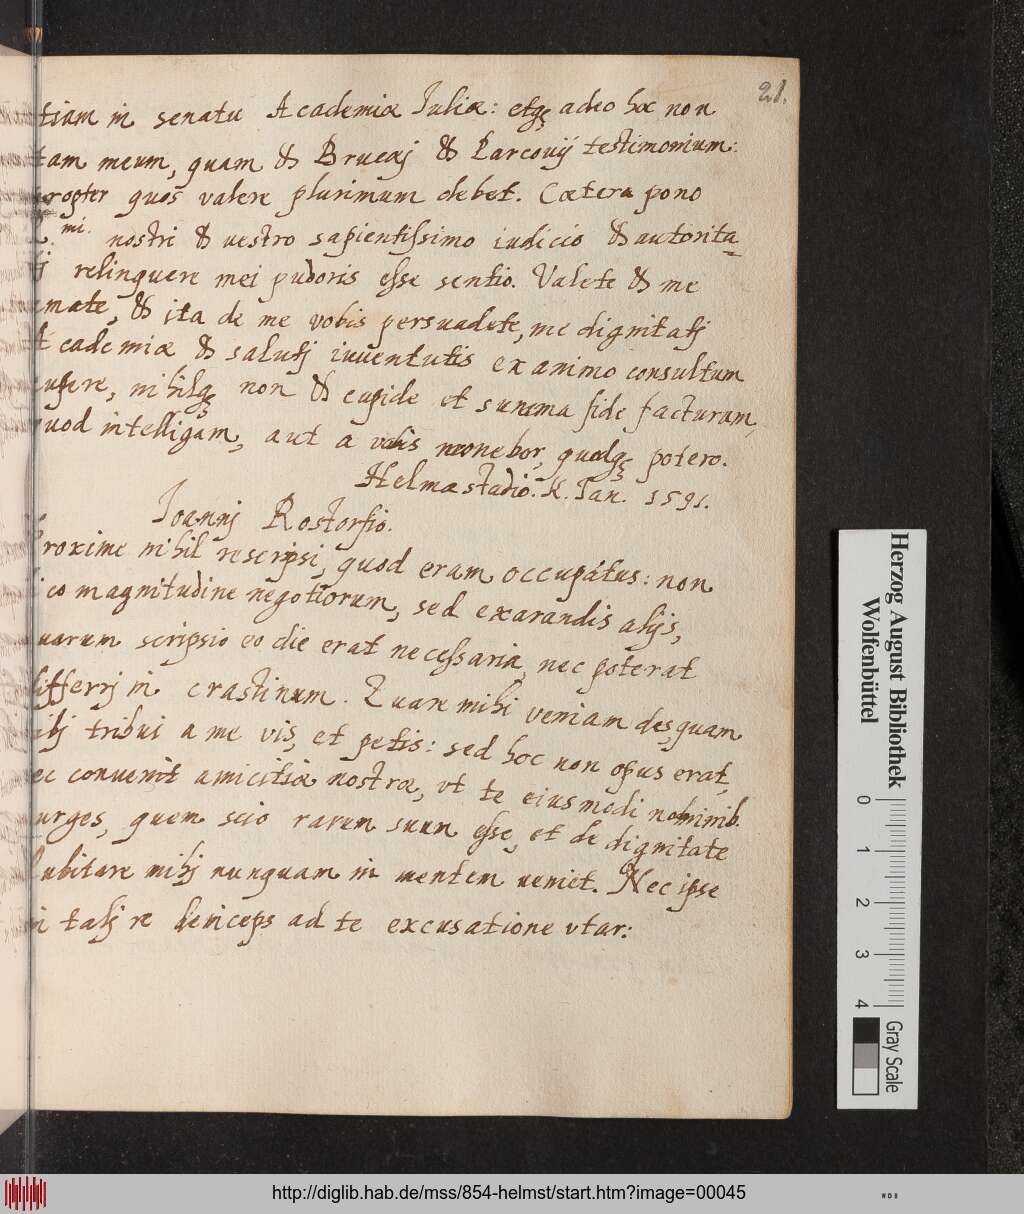 21.
tiam in senatu Academiæ Juliæ: etqȝ adeo hoc non
tam meum, quam & Brucæj & Parcovij testimonium:
propter quos valere plurimum debet. Cætera pono
mi. nostri & vestro sapientissimo iudicio & autorita=
tj relinquere mei pudoris esse sentio. Valete & me
amate, & ita de me vobis persuadete, me dignitatj
Academiæ & salutj iuventutis ex animo consultum
cupere, nihilqȝ non & cupide et summa fide facturum,
quod intelligam, aut a vobis monebor, quodqȝ potero.
Helmæstadio. K. Jan. 1591.
Joannj Rostorfio.
Proxime nihil rescripsi, quod eram occupatus: non
dico magnitudine negotiorum, sed exarandis alijs,
quarum scripsio eo die erat necessaria, nec poterat
differrj in crastinum. Quare mihi veniam des, quam
tibj tribui a me vis, et petis: sed hoc non opus erat,
nec convenit amicitiæ nostræ, vt te eiusmodi nominib.
purges, quem scio rarum suum esse, et de dignitate
dubitare mihj nunquam in mentem veniet. Nec ipse
in talj re deinceps ad te excusatione vtar:
Herzog August Bibliothek
Wolfenbüttel
0 1 2 3 4
Gray Scale
http://diglib.hab.de/mss/854-helmst/start.htm?image=00045